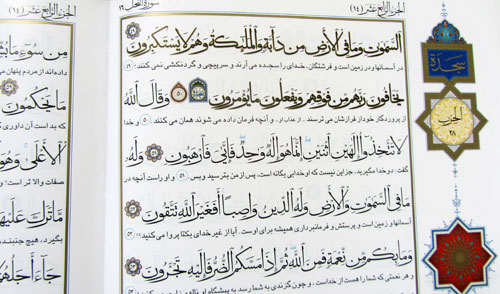 الجزء الرابع عشر (١٤)
سورة النحل ١٦
الجزء الرابع عشر (١٤)
السَّمٰوٰتِ وَمَا فِي الْأَرْضِ مِن دَابَّةٍ وَالْمَلٰئِكَةُ وَهُمْ لَا يَسْتَكْبِرُونَ ٤٩
در آسمانها و در زمین است و فرشتگان، خدای را سجده می آرند و سرپیچی و گردنکشی نمی کنند؛ ٤٩
يَخَافُونَ رَبَّهُم مِّن فَوْقِهِمْ وَيَفْعَلُونَ مَا يُؤْمَرُونَ ٥٠ وَقَالَ اللّٰهُ
از پروردگار خود از فرازشان می ترسند و آنچه فرمان داده می شوند همان می کنند ٥٠ و خدا
لَا تَتَّخِذُوا إِلٰهَيْنِ اثْنَيْنِ إِنَّمَا هُوَ إِلٰهٌ وَاحِدٌ فَإِيَّايَ فَارْهَبُونِ ٥١ وَلَهُ
گفت: دو خدا مگیرید، جز این نیست که او خدایی یگانه است، پس از من بترسید و بس ٥١ و او راست آنچه در
مَا فِي السَّمٰوٰتِ وَالْأَرْضِ وَلَهُ الدِّينُ وَاصِبًا أَفَغَيْرَ اللّٰهِ تَتَّقُونَ ٥٢
آسمانها و زمین است و پرستش و فرمانبرداری همیشه برای اوست. آیا از غیر خدای یکتا پروا می کنید؟ ٥٢
وَمَا بِكُم مِّن نِّعْمَةٍ فَمِنَ اللّٰهِ ثُمَّ إِذَا مَسَّكُمُ الضُّرُّ فَإِلَيْهِ تَجْـَٔرُونَ ٥٣
و هر نعمتی که شما را هست از خداست، و چون گزندی به شما رسد به پیشگاه او
سجدة
الحزب
٢٨
مِن سُوءِ مَا
داده اند از مردم پنهان می
مَا يَحْكُمُونَ
که بد است آن داوری که
الْأَعْلَىٰ وَهُوَ
صفات والا تر است؛ و
مَّا تَرَكَ عَلَيْهَا
بگیرد، هیچ جنبنده
جَاءَ أَجَلُهُمْ